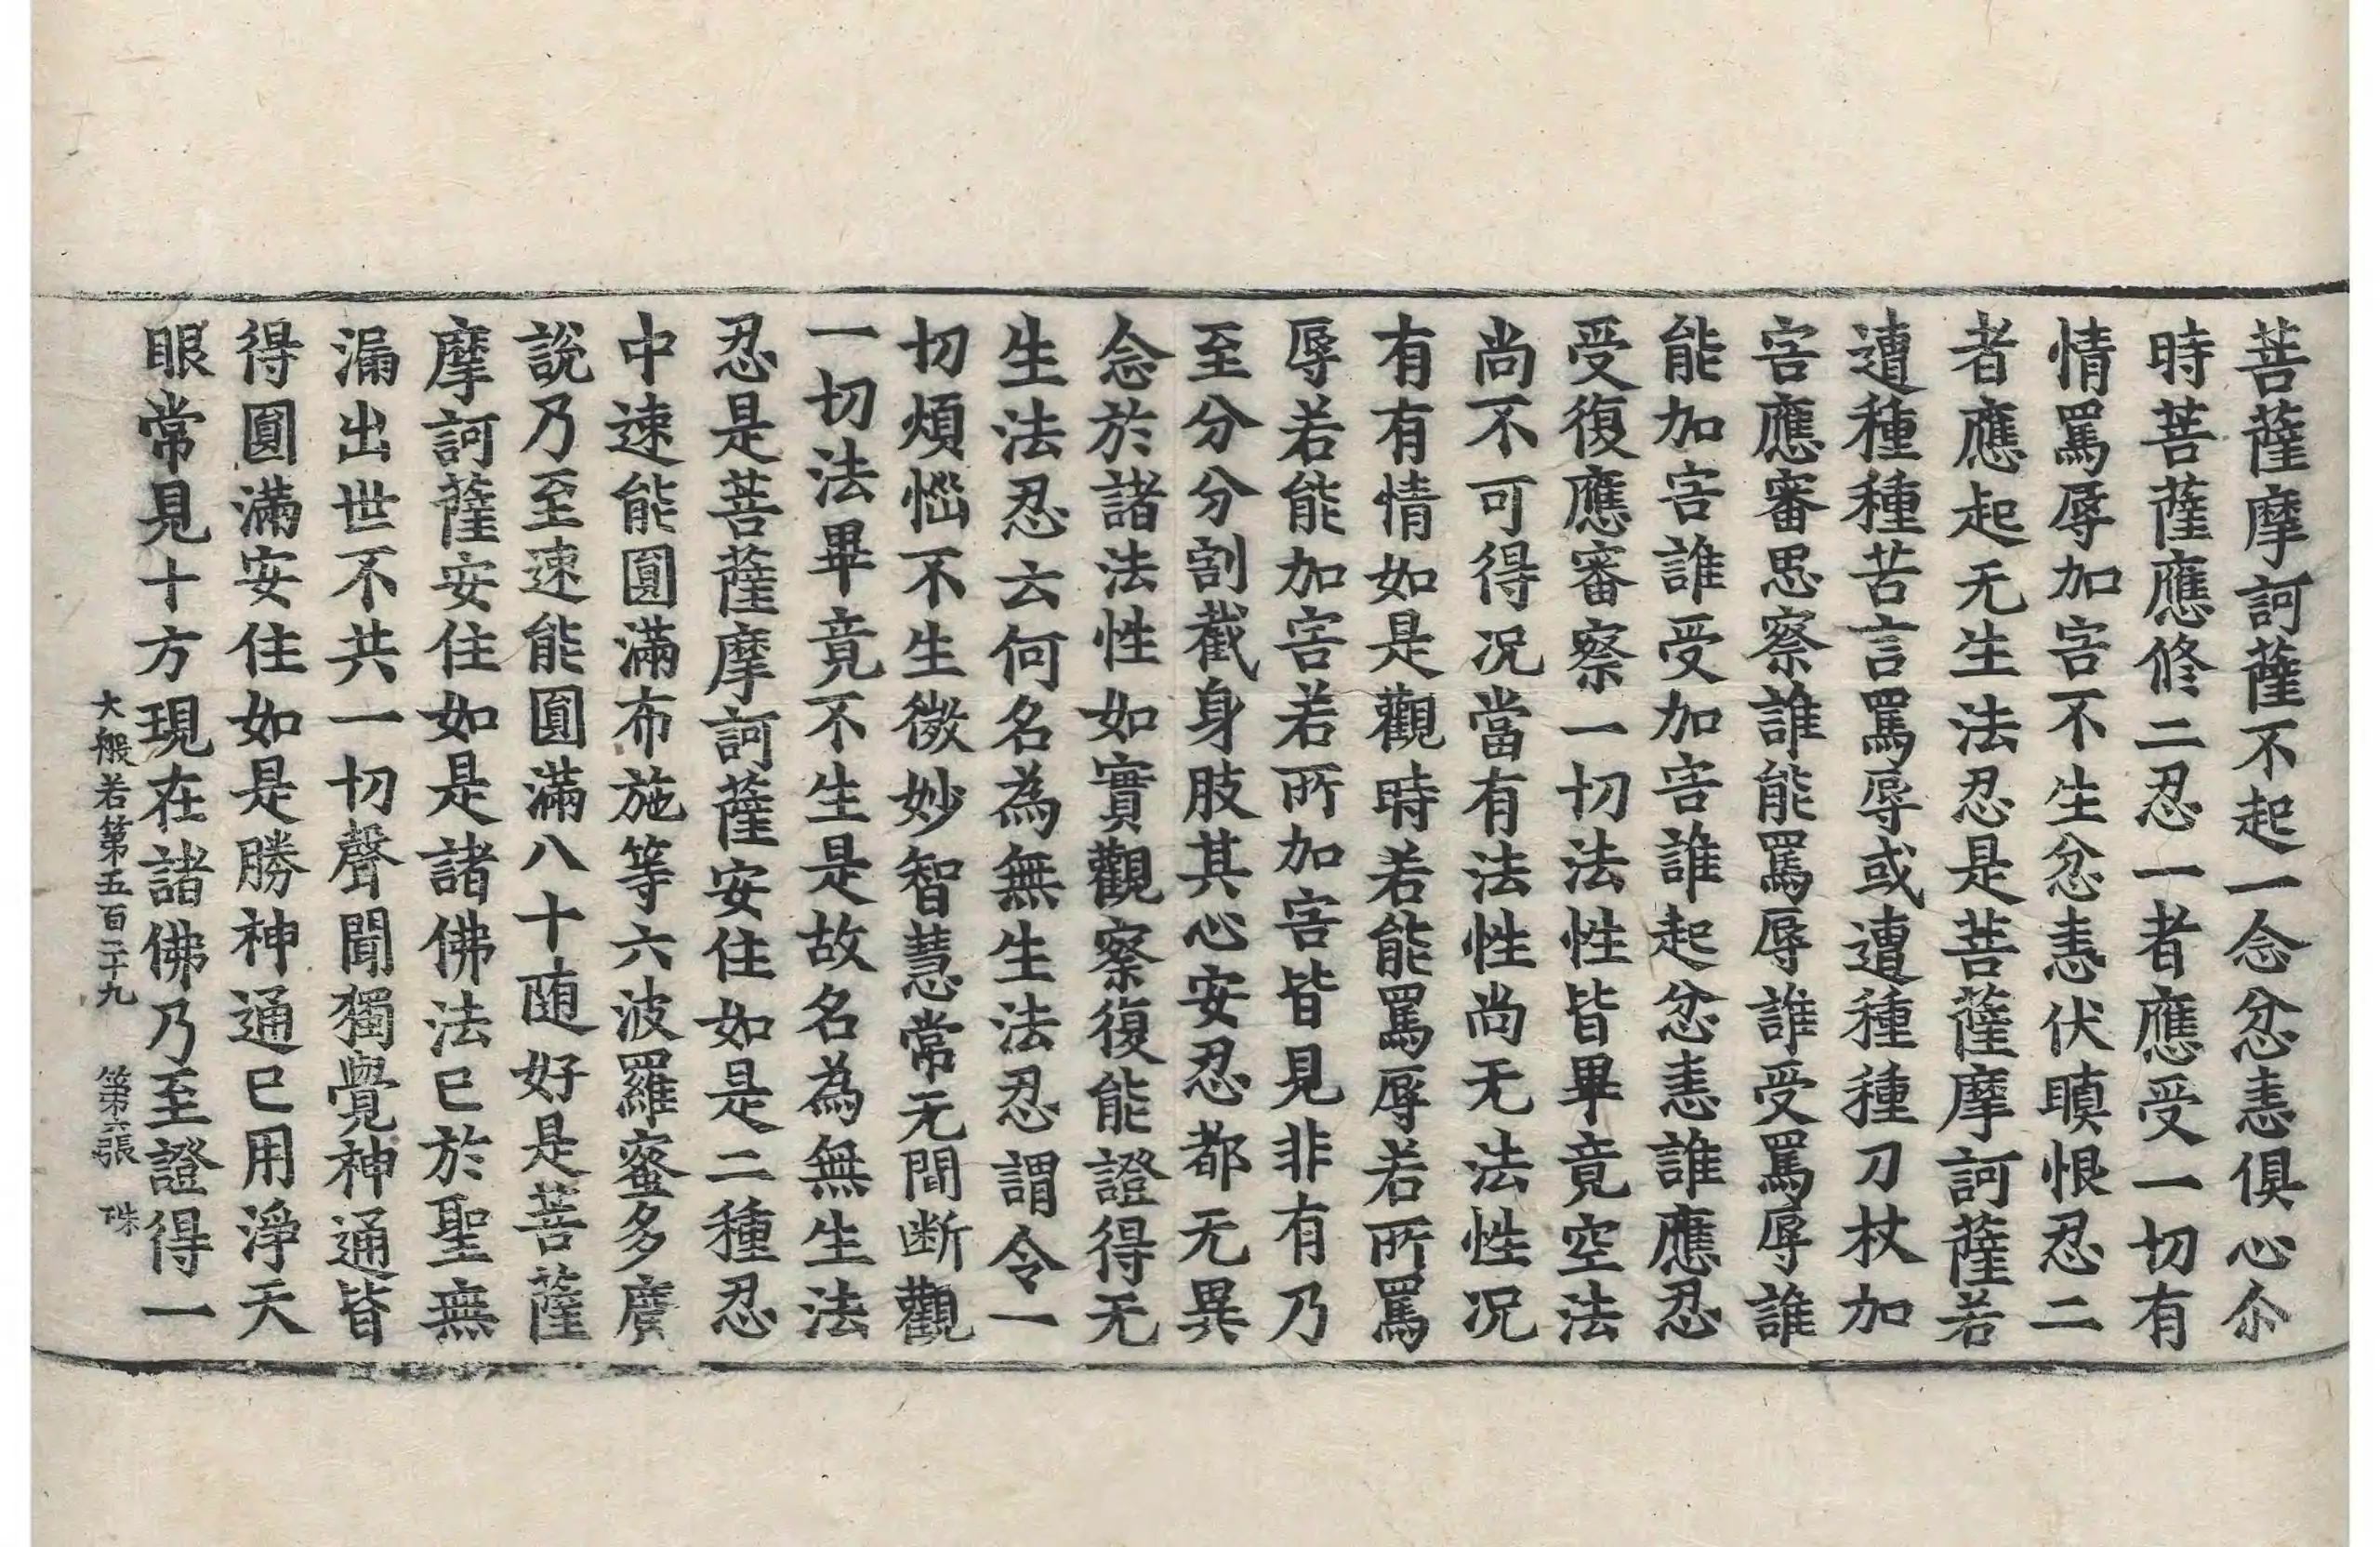 菩薩摩訶薩不起一念忿恚俱心尒
時菩薩應修二忍一者應受一切有
情罵辱加害不生忿恚伏瞋恨忍二
者應起无生法忍是菩薩摩訶薩若
遭種種苦言罵辱或遭種種刀杖加
害應審思察誰能罵辱誰受罵辱誰
能加害誰受加害誰起忿恚誰應忍
受復應審察一切法性皆畢竟空法
尚不可得況當有法性尚无法性況
有有情如是觀時若能罵辱若所罵
辱若能加害若所加害皆見非有乃
至分分割截身肢其心安忍都无異
念於諸法性如實觀察復能證得无
生法忍云何名為無生法忍謂令一
切煩惱不生微妙智慧常无間断觀
一切法畢竟不生是故名為無生法
忍是菩薩摩訶薩安住如是二種忍
中速能圓滿布施等六波羅蜜多廣
說乃至速能圓滿八十随好是菩薩
摩訶薩安住如是諸佛法已於聖無
漏出世不共一切聲聞獨覺神通皆
得圓滿安住如是勝神通已用淨天
眼常見十方現在諸佛乃至證得一
大般若第五百二十九 第六張 珠